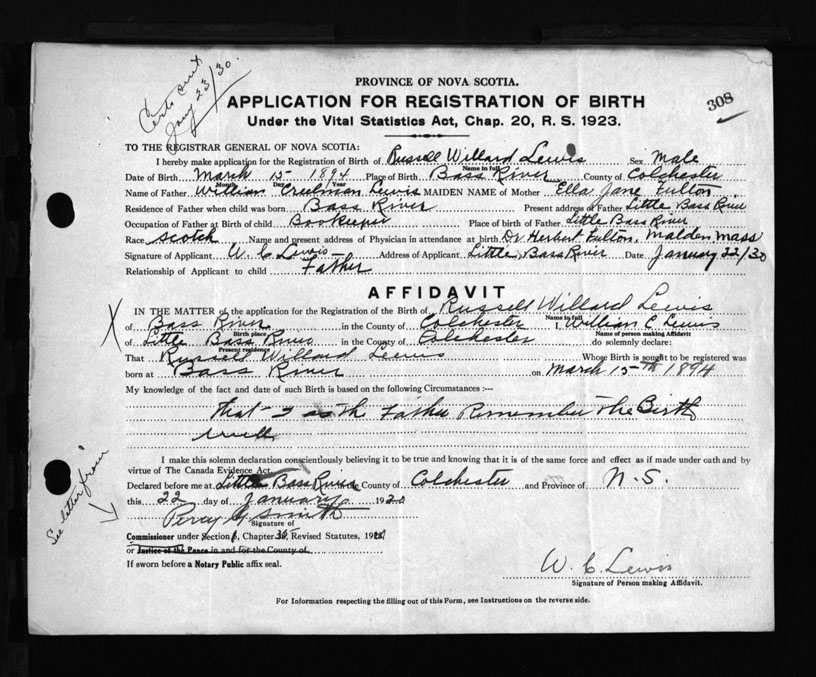 Certs sent
Jany 23/30.
308
PROVINCE OF NOVA SCOTIA.
APPLICATION FOR REGISTRATION OF BIRTH
Under the Vital Statistics Act, Chap. 20, R. S. 1923.
TO THE REGISTRAR GENERAL OF NOVA SCOTIA:
I hereby make application for the Registration of Birth of Russell Willard Lewis Sex Male
Name in full
Date of Birth March 15 1894 Place of Birth Bass River County of Colchester
Month Day Year
Name of Father William Creelman Lewis MAIDEN NAME of Mother Ella Jane Fulton
Residence of Father when child was born Bass River Present address of Father Little Bass River
Occupation of Father at Birth of child Bookeeper Place of birth of Father Little Bass River
Race Scotch Name and present address of Physician in attendance at birth Dr Herbert Fulton, Malden, Mass
Signature of Applicant W. C. Lewis Address of Applicant Little Bass River Date January 22/30
Relationship of Applicant to child Father
AFFIDAVIT
X
IN THE MATTER of the application for the Registration of the Birth of Russell Willard Lewis
Name in full
of Bass River in the County of Colchester I, William C Lewis
Birth place Name of person making Affidavit
of Little Bass River in the County of Colchester do solemnly declare:
Present residence
That Russell Willard Lewis Whose Birth is sought to be registered was
born at Bass River on March 15th 1894
My knowledge of the fact and date of such Birth is based on the following Circumstances :—
that I as the Father Remember the Birth
well
I make this solemn declaration conscientiously believing it to be true and knowing that it is of the same force and effect as if made under oath and by
virtue of The Canada Evidence Act.
Declared before me at Little Bass River in the County of Colchester and Province of N.S.
this 22 day of January 19
Percy Smith
Signature of
Commissioner under Section Chapter Revised Statutes,
or Justice of the Peace in and for the County of
If sworn before a Notary Public affix seal.
See letter from
W. C. Lewis
Signature of Person making Affidavit.
For Information respecting the filling out of this Form, see Instructions on the reverse side.